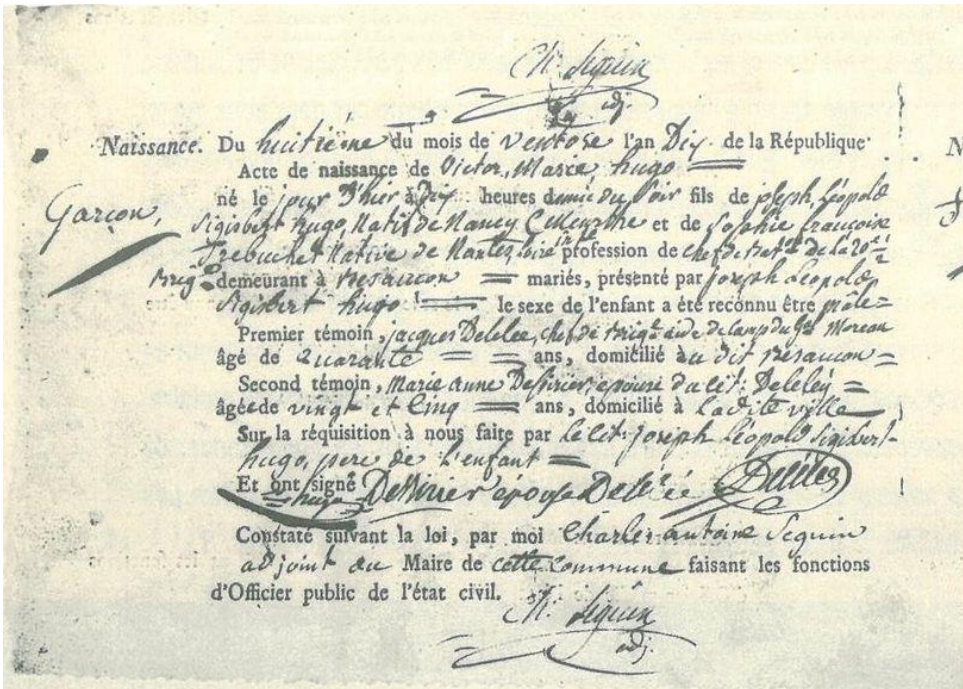 Ch. Seguin
adj.
Naissance. Du huitième du mois de Ventose l'an Dix de la République
Acte de naissance de Victor, Marie hugo
Garçon, né le jour d'hier à Dix heures demie du Soir fils de joseph, Léopold
Sigisbert hugo, Natif de Nancy (Meurthe et de Sophie francoise
Trebuchet Native de Nantes, Loire inf.re profession de chef de Bat.on de la 20.e ½
Brig.e demeurant à Besancon mariés, présenté par joseph Léopold
Sigisbert hugo le sexe de l'enfant a été reconnu être mâle
Premier témoin, jacques Delelée, chef de Brig.e aide de camp du g.al Moreau
âgé de Quarante ans, domicilié au dit Besancon
Second témoin, Marie anne Dessirier, epouse du cit: Delelée
âgée de vingt et Cinq ans, domicilié à Ladite ville
Sur la réquisition à nous faite par le cit: joseph Léopold Sigisbert
hugo, pere de L'enfant
Et ont signé Dessirier epouse Delelée Delelée
hugo
Constaté suivant la loi, par moi Charles antoine Seguin
adjoint au Maire de cette commune faisant les fonctions
d'Officier public de l'état civil.
Ch. Seguin
adj.